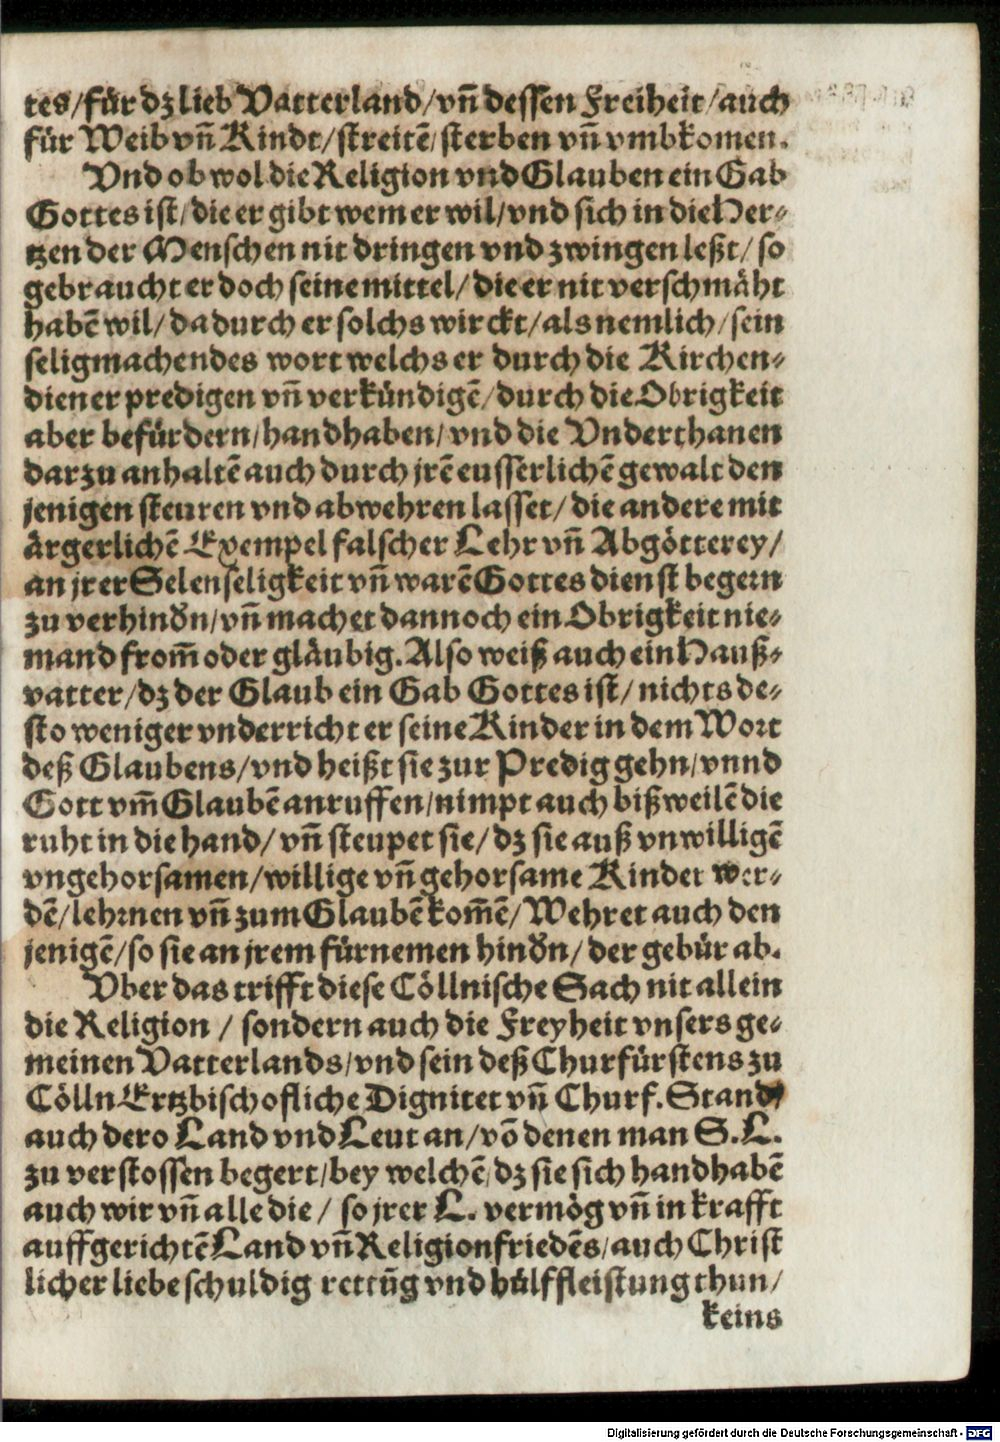 tes/für dz lieb Vatterland/vñ dessen Freiheit/auch
für Weib vñ Kindt/streitẽ/sterben vñ vmbkomen.
Vnd ob wol die Religion vnd Glauben ein Gab
Gottes ist/die er gibt wem er wil/vnd sich in die Her⸗
tzen der Menschen nit dringen vnd zwingen leßt/so
gebraucht er doch seine mittel/die er nit verschmäht
habẽ wil/dadurch er solchs wirckt/als nemlich/sein
seligmachendes wort welchs er durch die Kirchen⸗
diener predigen vñ verkündigẽ/durch die Obrigkeit
aber befürdern/handhaben/vnd die Vnderthanen
darzu anhaltẽ auch durch jrẽ eusserlichẽ gewalt den
jenigen steuren vnd abwehren lasset/die andere mit
ärgerlichẽ Exempel falscher Lehr vñ Abgötterey/
an jrer Selenseligkeit vñ warẽ Gottesdienst begern
zu verhindn/vñ machet dannoch ein Obrigkeit nie⸗
mand from̃ oder gläubig. Also weiß auch ein Hauß⸗
vatter/dz der Glaub ein Gab Gottes ist/nichts de⸗
sto weniger vnderricht er seine Kinder in dem Wort
deß Glaubens/vnd heißt sie zur Predig gehn/vnnd
Gott vm̃ Glaubẽ anruffen/nimpt auch bißweilẽ die
ruht in die hand/vñ steupet sie/dz sie auß vnwilligẽ
vngehorsamen/willige vñ gehorsame Kinder wer⸗
dẽ/lehrnen vñ zum Glaubẽ kom̃ẽ/Wehret auch den
jenigẽ/so sie an jrem fürnemen hindn/der gebür ab.
Vber das trifft diese Cöllnische Sach nit allein
die Religion/sondern auch die Freyheit vnsers ge⸗
meinen Vatterlands/vnd sein deß Churfürstens zu
Cölln Ertzbischofliche Dignitet vñ Churf. Stand/
auch dero Land vnd Leut an/võ denen man S. L.
zu verstossen begert/bey welchẽ/dz sie sich handhabẽ
auch wir vñ alle die/so jrer L. vermög vñ in krafft
auffgerichtẽ Land vñ Religionfriedẽs/auch Christ
licher liebe schuldig rettũg vnd hülffleistung thun/
keins
Digitalisierung gefördert durch die Deutsche Forschungsgemeinschaft - DFG